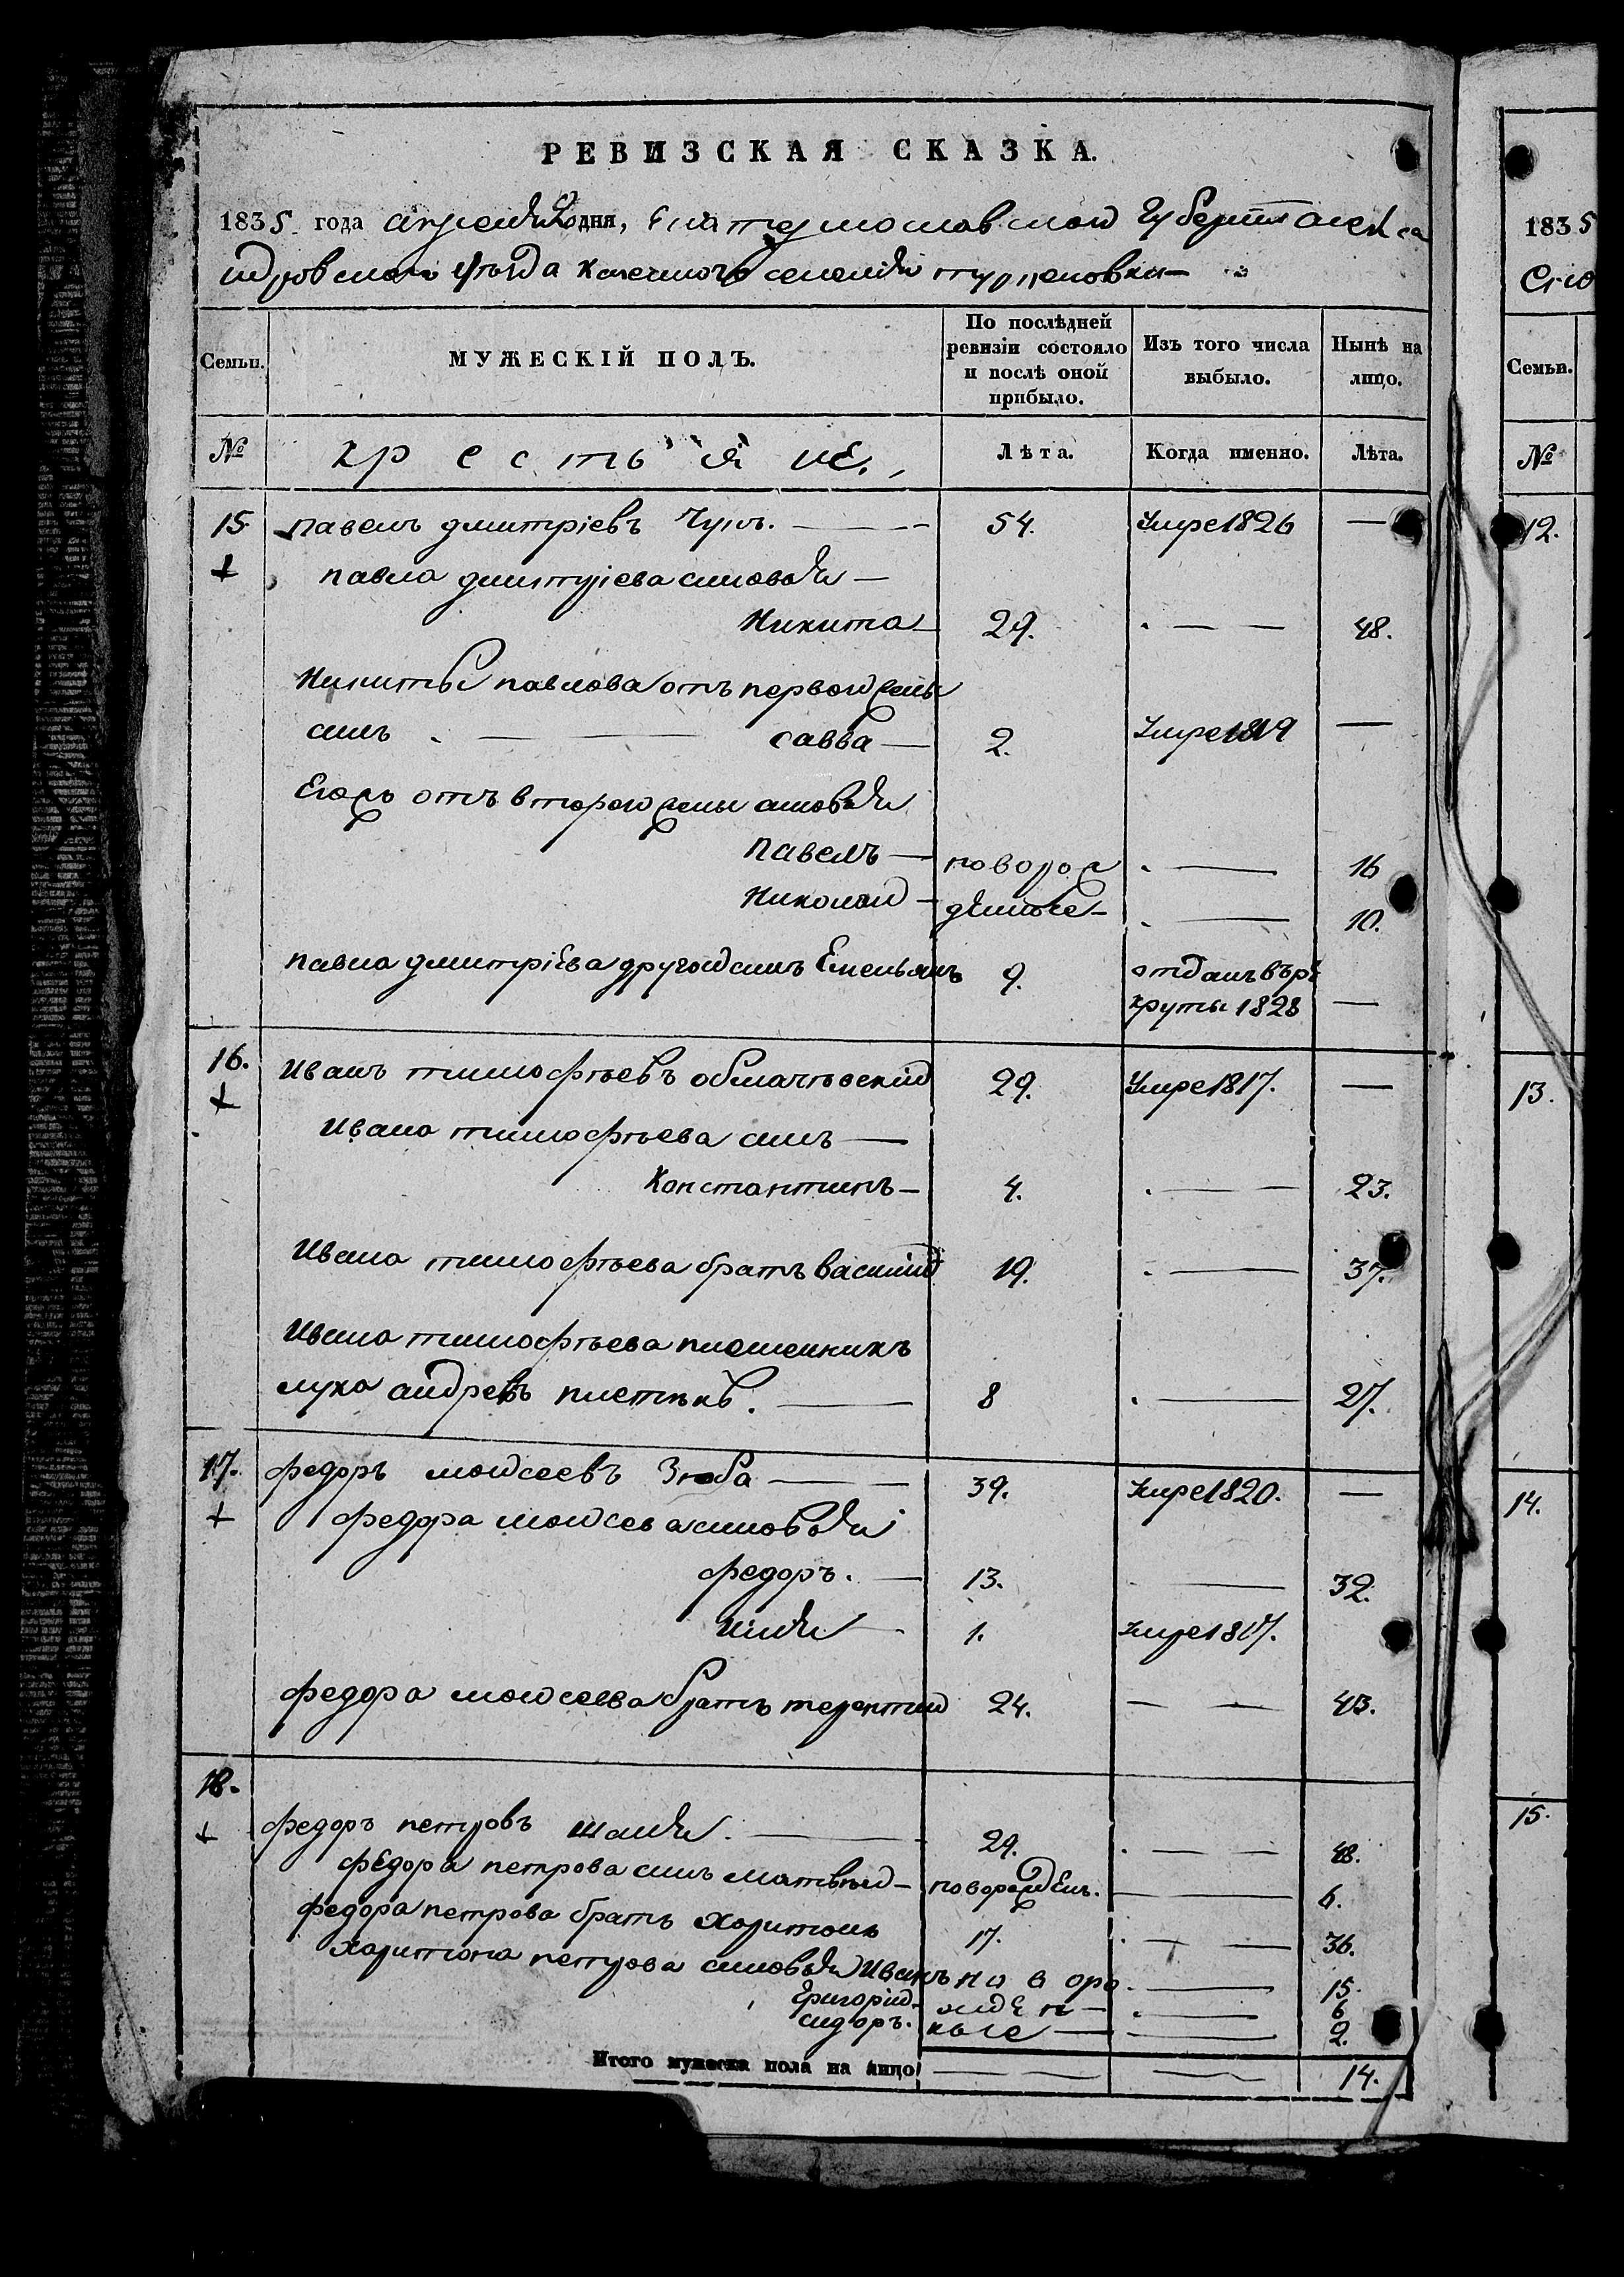 РЕВИЗСКАЯ СКАЗКА.
1835 года апреля дня, Екатеринославской Губернии Алекса
ндровскаго уѣзда Казеннаго селенія
Семьи. МУЖЕСКІЙ ПОЛЪ. По послѣдней ревизіи состояло и послѣ оной прибыло. Изъ того числа выбыло. Нынѣ на лицо.
№ крестьяне, Лѣта. Когда именно. Лѣта.
15 павелъ дмитріевъ — 54. Умре 1826 —
павла дмитріева сыновья —
Никита 29. — — 48.
Никиты павлова отъ первой жены
сынъ — — савва — 2. Умре 1819 —
Егожъ отъ второй жены сыновья
Павелъ — новорож — 16
Николай — денные — 10.
павла дмитріева другой сынъ Емельянъ 9. отданъ въ ре
круты 1828 —
16. Иванъ тимофѣевъ 29. Умре 1817. —
Ивана тимофѣева сынъ —
Константинъ — 4. — — 23.
Ивана тимофѣева братъ василій 19. — 37.
Ивана тимофѣева племенникъ
лука андревъ 8 — 27.
17. федоръ моисеевъ Зюба — 39. Умре 1820. —
федора моисева сыновья
федоръ. — 13. — 32.
Илья — 1. Умре 1817.
федора моисеева братъ терентий 24. — — 43.
18.
федоръ петровъ — 29. — — 48.
федора петрова сынъ матвѣй — новорожден. — 6.
федора петрова братъ Харитонъ 17. — — 36.
Харитона петрова сыновья Иванъ новоро — 15.
Григорій. жден — — 6
сидоръ. ные — — 2.
Итого мужеска пола на лицо — — — 14.
1835
Семьи.
№
12.
13.
14.
15.